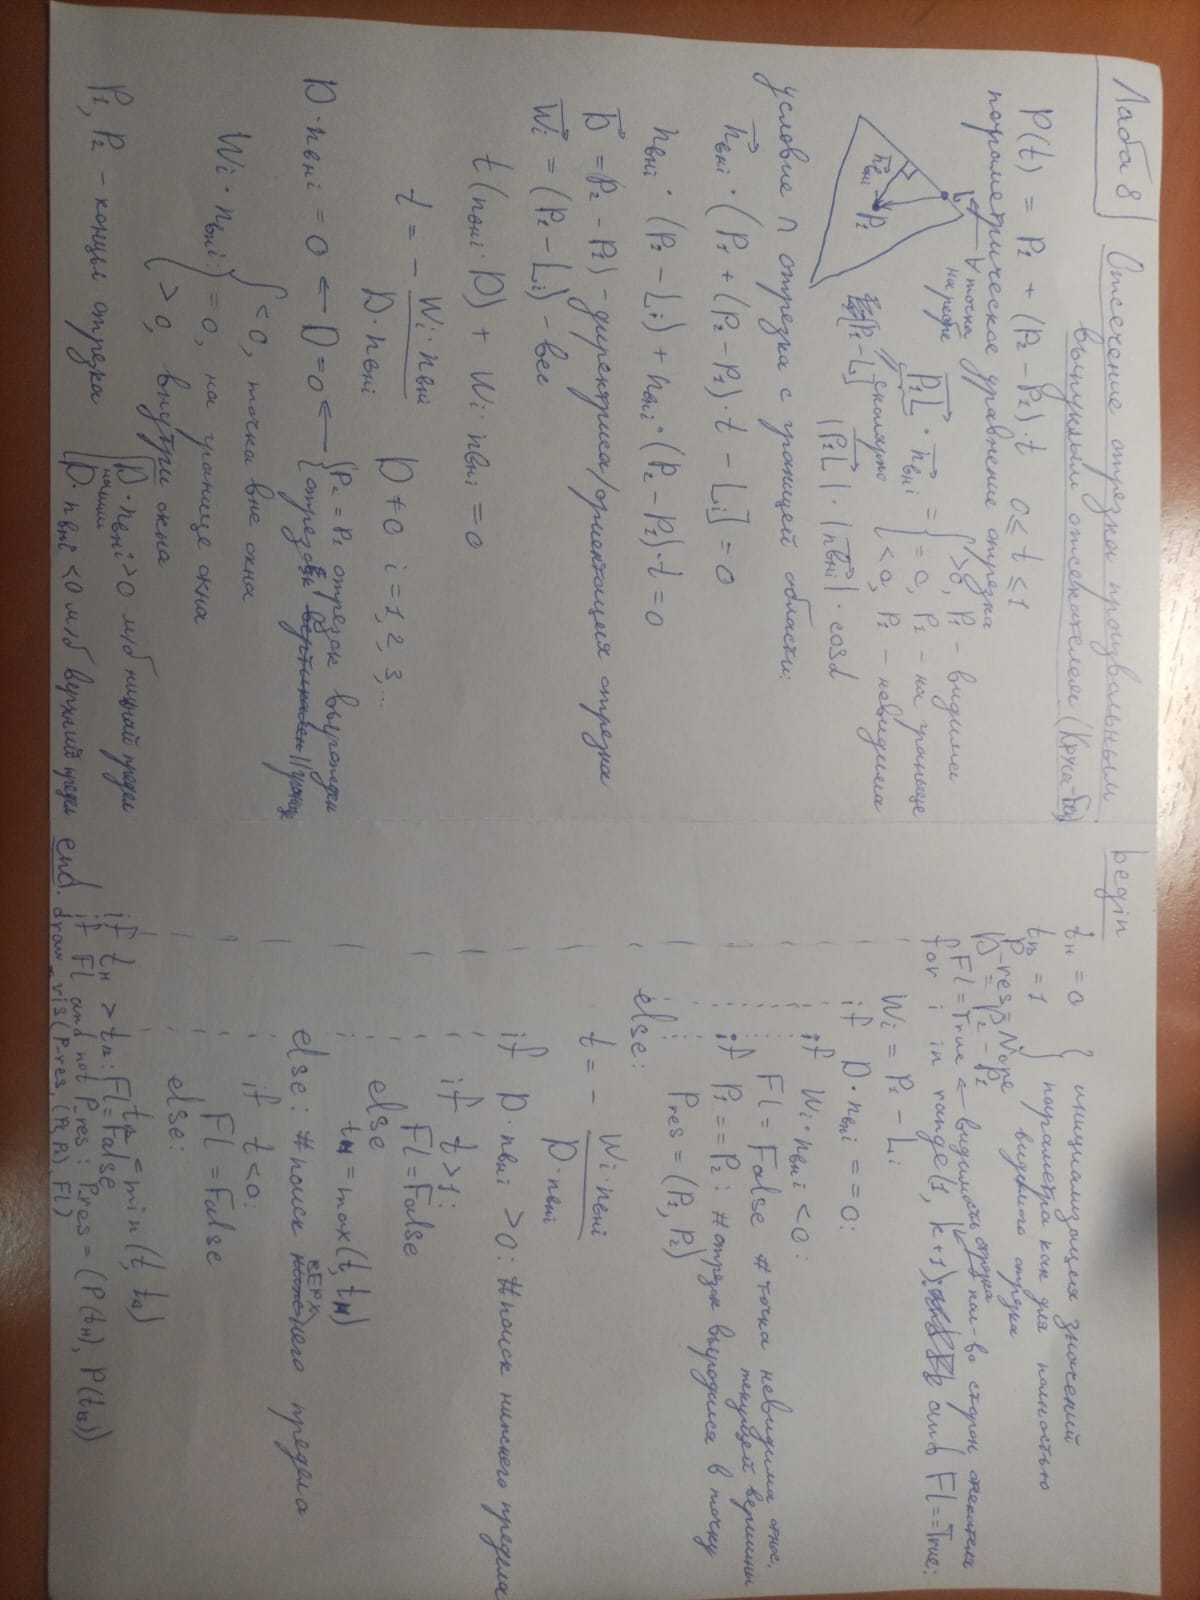 Лаба 8
Отсечение отрезка произвольным
выпуклым отсекателем (Кируса-Бека)
P(t) = P₁ + (P₂ - P₁)·t 0 ≤ t ≤ 1
параметрическое уравнение отрезка
L ← ∀ точка
на ребре
n⃗внi P₁
P₁L · n⃗внi = { > 0, P₁ - видима
= 0, P₁ - на границе
< 0, P₁ - невидима
[P₁ - L] скалярно |P₁L| · |n⃗внi| · cosα
условие ∩ отрезка с границей области:
n⃗внi · (P₁ + (P₂ - P₁)·t - Li] = 0
nвнi · (P₁ - Li) + nвнi · (P₂ - P₁)·t = 0
D⃗ = (P₂ - P₁) - директриса/ориентация отрезка
W⃗i = (P₁ - Li) - вес
t(nвнi · D) + Wi · nвнi = 0
t = - Wi · nвнi / D · nвнi D ≠ 0 i = 1, 2, 3, ...
D · nвнi = 0 ← D = 0 ← { P₂ = P₁ отрезок вырожден
отрезок || границе
Wi · nвнi : { < 0, точка вне окна
= 0, на границе окна
> 0, внутри окна
P₁, P₂ - концы отрезка
[ D · nвнi > 0 м/б нижний предел
D · nвнi < 0 м/б верхний предел
begin
tн = 0 { инициализация значений
tв = 1 параметра как для полностью
видимого отрезка
P-res = None
D = P₂ - P₁
Fl = True ← видимость отрезка
кол-во сторон отсекателя
for i in range(1, k+1) and Fl == True:
Wi = P₁ - Li
if D · nвнi == 0:
if Wi · nвнi < 0:
Fl = False # точка невидима относ.
текущей вершины
if P₁ == P₂: # отрезок выродился в точку
Pres = (P₁, P₂)
else:
t = - Wi · nвнi / D · nвнi
if D · nвнi > 0: # поиск нижнего предела
if t > 1:
Fl = False
else
tн = max(t, tн)
else: # поиск верхнего предела
if t < 0:
Fl = False
else:
tв = min(t, tв)
if tн > tв: Fl = False
if Fl and not P_res: Pres = (P(tн), P(tв))
end. draw_vis(P-res, (P₁, P₂), Fl)